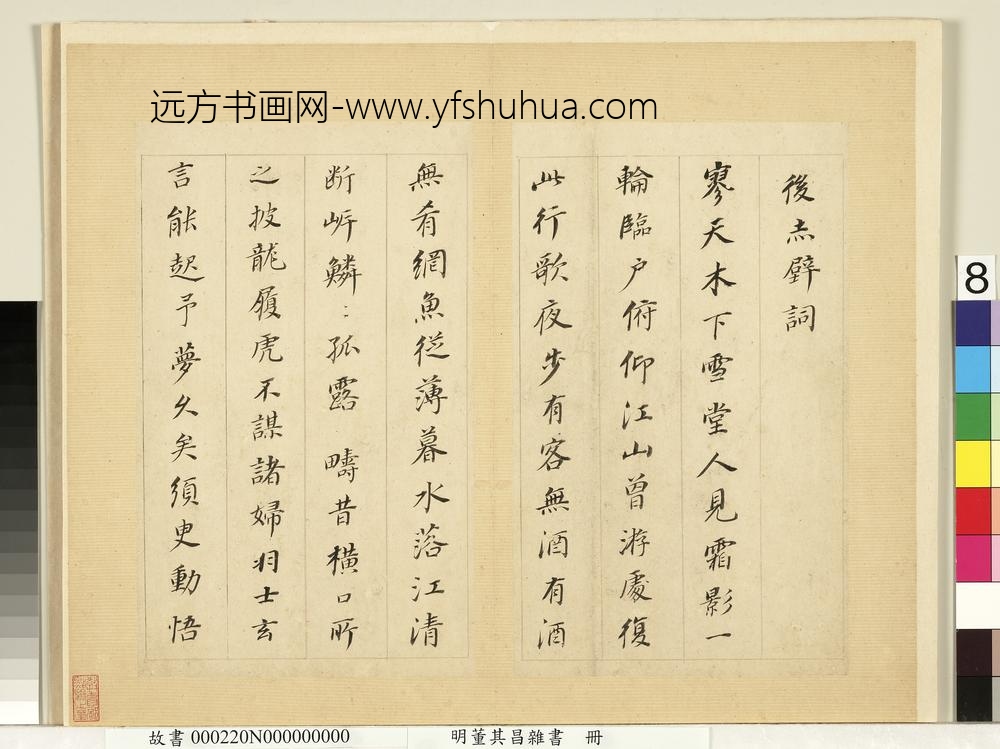 远方书画网-www.yfshuhua.com
後赤壁詞
寥天木下雪堂人見霜影一
輪臨户俯仰江山曾游處復
此行歌夜步有客無酒有酒
無肴網魚從薄暮水落江清
断岸鱗〻孤露 疇昔橫口所
之披龍履虎不謀諸婦羽士玄
言能起予夢久矣須臾動悟
8
故書 000220N000000000
明董其昌雜書 冊